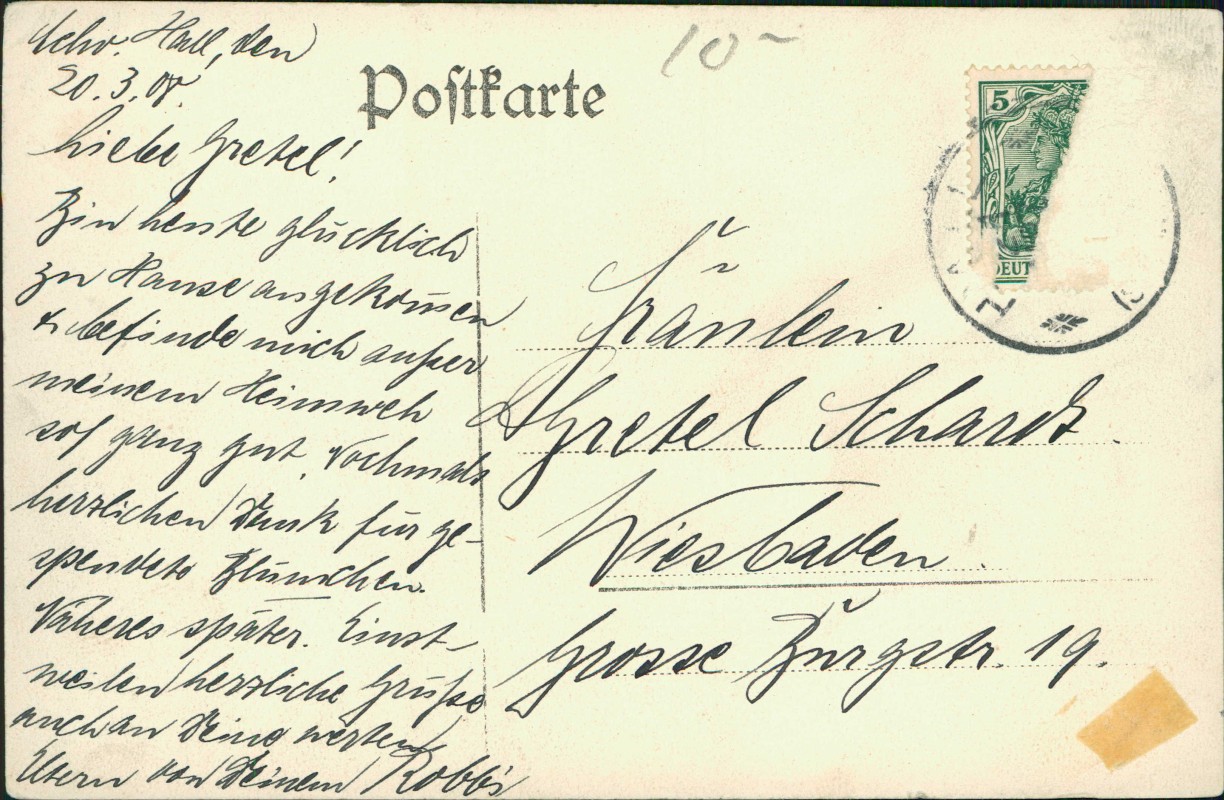 10-
Postkarte
Schw. Hall, den
20. 3. 08.
Liebe Gretel!
Bin heute glücklich
zu Hause angekom̄en
& befinde mich außer
meinem Heimweh
sof ganz gut. Nochmals
herzlichen Dank für ge-
spendete Blümchen.
Näheres später. Einst-
weilen herzliche Grüße
auch an Deine werten
Eltern von Deinem Robbi
5
DEUT
HALL
Fräulein
Gretel Schardt
Wiesbaden.
Grosse Burgstr. 19.